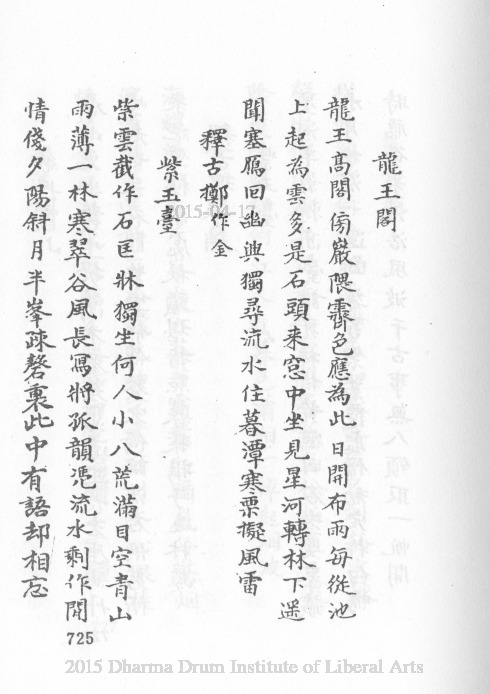 龍王閣
龍王高閣傍巖隈霽色應為此日開布雨每從池
上起為雲多是石頭来窓中坐見星河轉林下遥
聞塞鴈回幽興獨尋流水住暮潭寒栗擬風雷
釋古擲作金
紫玉臺
紫雲截作石匡牀獨坐何人小八荒滿目空青山
雨薄一林寒翠谷風長寫將孤韻憑流水剩作閒
情伐夕陽斜月半峯疎磬裏此中有語却相忘
725
2015-04-17
2015 Dharma Drum Institute of Liberal Arts